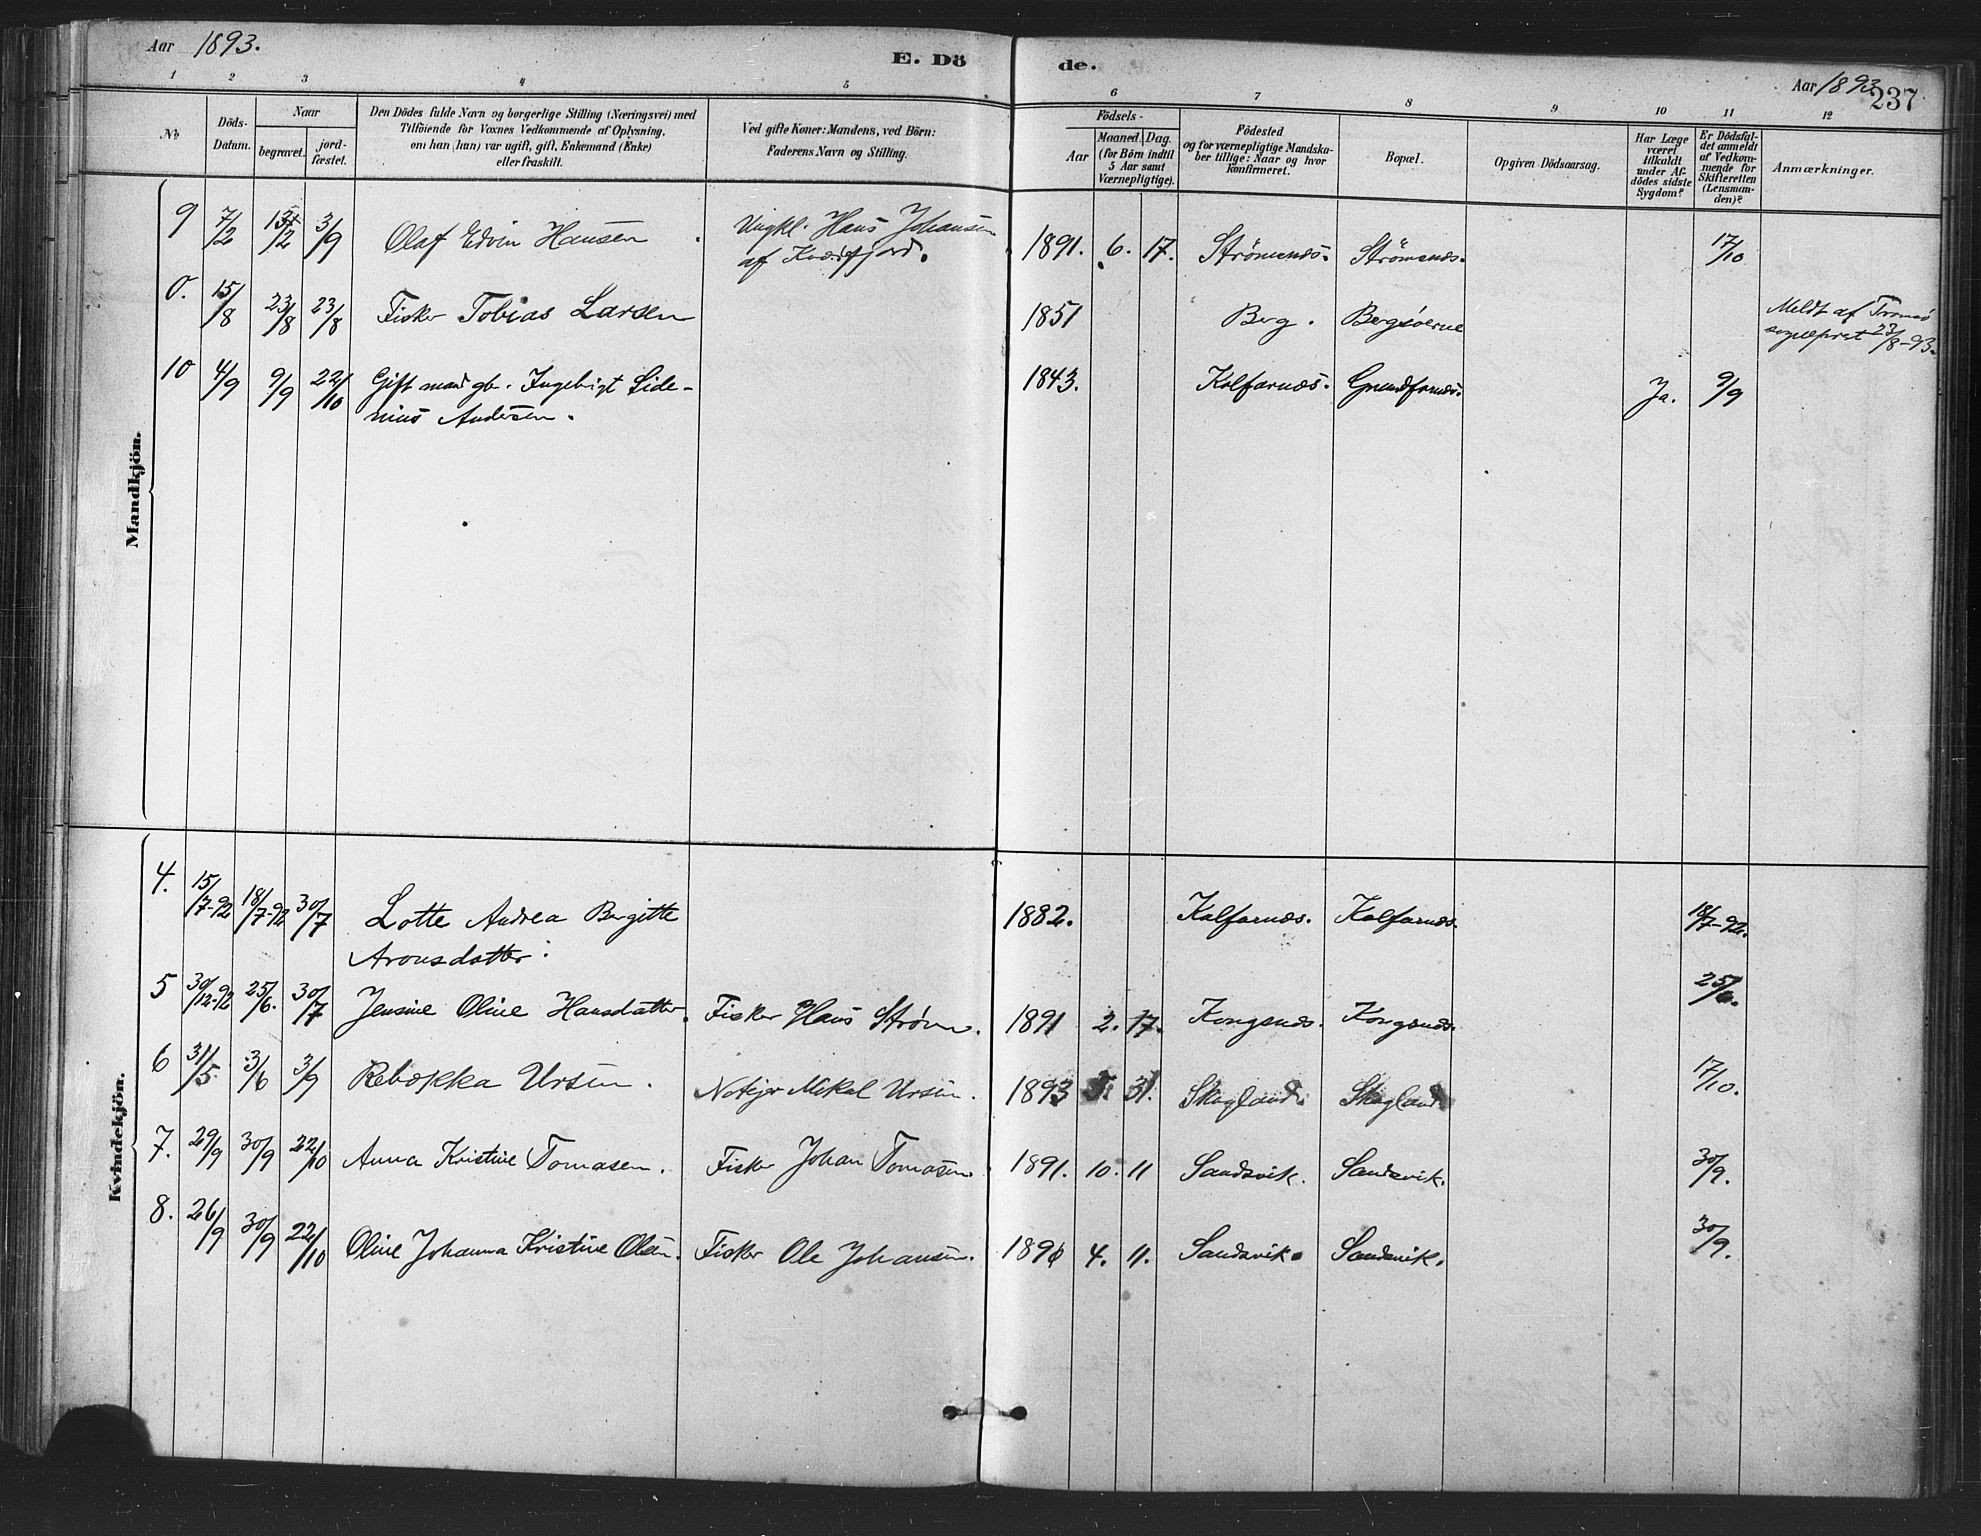 Aar 1893.
E. Dö
de.
Aar 1893
237
1 2 3 4 5 6 7 8 9 10 11 12
No
Döds-
Datum.
Naar
begravet.
jord-
fæstet.
Den Dödes fulde Navn og borgerlige Stilling (Næringsvei) med
Tilföiende for Voxnes Vedkommende af Oplysning,
om han (hun) var ugift, gift, Enkemand (Enke)
eller fraskilt.
Ved gifte Koner: Mandens, ved Börn:
Faderens Navn og Stilling.
Födsels-
Aar
Maaned. Dag.
(for Börn indtil
5 Aar samt
Værnepligtige).
Födested
og for værnepligtige Mandska-
ber tillige: Naar og hvor
konfirmeret.
Bopæl.
Opgiven Dödsaarsag.
Har Læge
været
tilkaldt
under Af-
dödes sidste
Sygdom?
Er Dödsfal-
det anmeldt
af Vedkom-
mende for
Skifteretten
(Lensman-
den)?
Anmærkninger.
Mandkjön.
9 7/2 /2 3/9 Olaf Edvin Hansen Ungkl. Hans Johansen 1891. 6. 17. Strømsnæs. Strømsnæs. 17/10
af Kvæfjord.
0. 15/8 23/8 23/8 Fisker Tobias Larsen 1851 Berg. Bergsøerne Meldt af Tromsø
sogneprest 23/8-93.
10 4/9 9/9 22/10 Gift mand gb. Ingebrigt Side- 1843. Kalfarnæs. Grundfarnæs. Ja. 9/9
nius Andersen.
Kvindekjön.
4. 15/7-92 18/7-92 30/7 Lotte Andrea Bergitte 1882. Kalfarnæs. Kalfarnæs. 18/7-92.
Aronsdatter.
5 30/12-92 25/6. 30/7 Jensine Oline Hansdatter. Fisker Hans Strøm. 1891 2. 17. Kongsnæs. Kongsnæs. 25/6.
6 31/5 3/6 3/9 Rebekka Ursin. Mikal Ursin. 1893 5. 31. Skagland. Skagland 17/10.
7. 29/9 30/9 22/10 Anna Kristine Tomasen. Fisker Johan Tomasen. 1891. 10. 11 Sandsvik. Sandsvik. 30/9.
8. 26/9 30/9 22/10 Oline Johanna Kristine Olsen. Fisker Ole Johansen. 189 4. 11. Sandsvik. Sandsvik. 30/9.